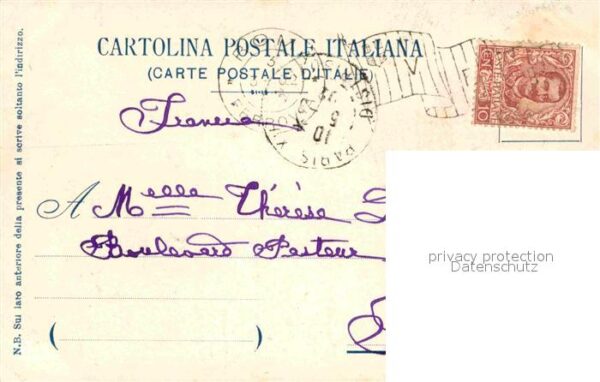 CARTOLINA POSTALE ITALIANA
(CARTE POSTALE D'ITALIE)
Francia
A Mella Thérèse
Boulevard Pasteur
N.B. Sul lato anteriore della presente si scrive soltanto l'indirizzo.
PARIS
10
5
privacy protection
Datenschutz